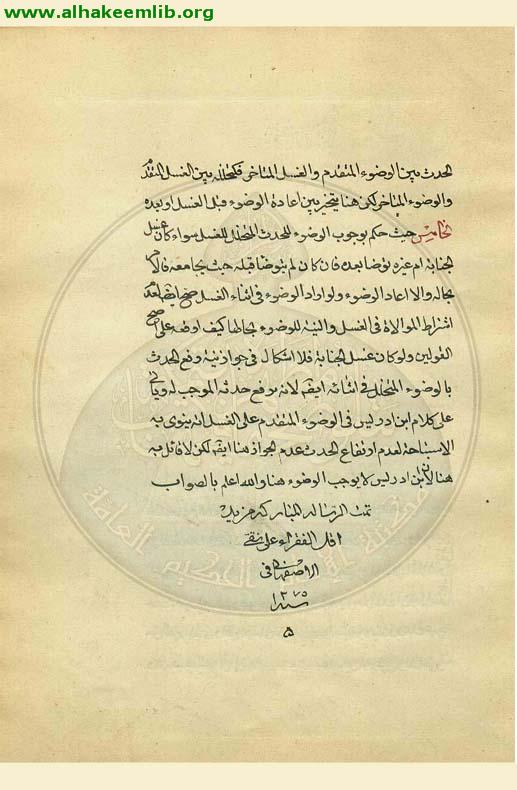 www.alhakeemlib.org
الحدث بين الوضوء المتقدم والغسل المتاخر فكتخلله بين الغسل المتقدم
والوضوء المتاخر لكن هنا يتخير بين اعادة الوضوء قبل الغسل او بعده
الخامس حيث حكم بوجوب الوضوء للحدث المتخلل للغسل سواء كان غسل
الجنابة ام غيره توضا بعده فان كان لم يتوضا قبله حيث يجامعه فالامر
بحاله والا اعاد الوضوء ولو اراد الوضوء في اثناء الغسل صح ايضا لعدم
اشتراط الموالاة في الغسل والنية للوضوء بحالها كيف اوقعه على اصح
القولين ولو كان غسل الجنابة فلا اشكال في جواز نية رفع الحدث
بالوضوء المتخلل في اثنائه ايضا لانه يرفع حدثه الموجب له وياتي
على كلام ابن ادريس في الوضوء المتقدم على الغسل انه ينوى به
الاستباحة لعدم ارتفاع الحدث عدم الجواز هنا ايضا لكن لا قائل به
هنا لان ابن ادريس لا يوجب الوضوء هنا والله اعلم بالصواب
تمت الرسالة المباركة
اقل الفقراء على نقي
الاصفهاني
١٢٧٥